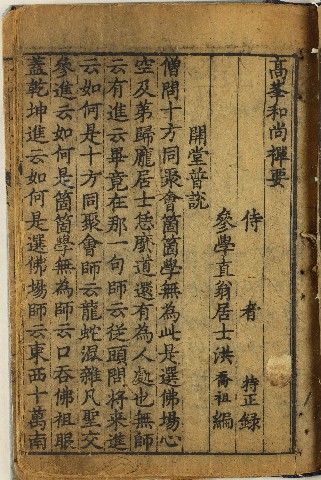 高峯和尚禪要
侍者 持正 録
參學直翁居士洪 喬祖 編
開堂普說
僧問十方同聚會箇箇學無為此是選佛場心
空及第歸龐居士恁麽道還有為人處也無師
云有進云畢竟在那一句師云從頭問將来進
云如何是十方同聚會師云龍蛇混雜凡聖交
參進云如何是箇箇學無為師云口吞佛祖眼
盖乾坤進云如何是選佛場師云東西十萬南